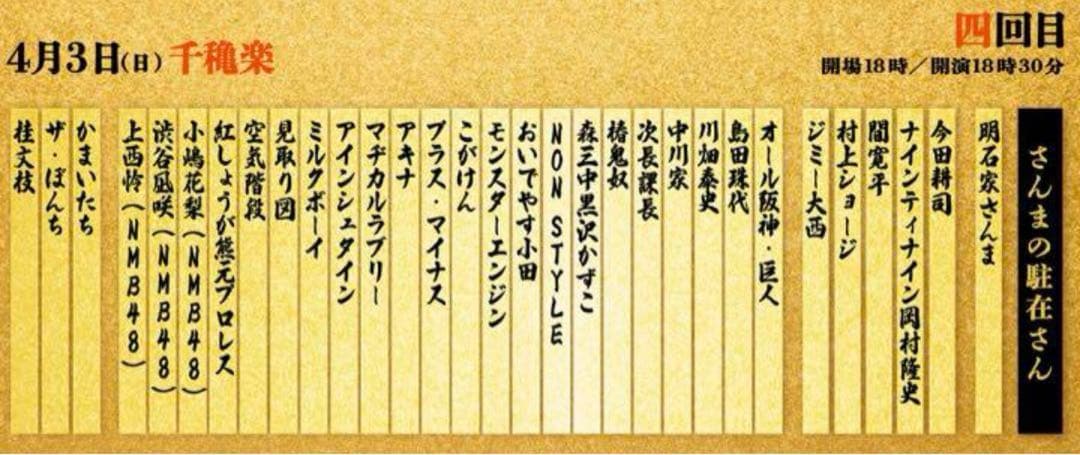 4月3日(日)千穐楽
四回目
開場18時/開演18時30分
さんまの駐在さん
明石家さんま
今田耕司
ナインティナイン岡村隆史
間寛平
村上ショージ
ジミー大西
オール阪神・巨人
島田珠代
川畑泰史
中川家
次長課長
椿鬼奴
森三中黒沢かずこ
NON STYLE
おいでやす小田
モンスターエンジン
こがけん
プラス・マイナス
アキナ
マヂカルラブリー
アインシュタイン
ミルクボーイ
見取り図
空気階段
紅しょうが熊元プロレス
小嶋花梨(NMB48)
渋谷凪咲(NMB48)
上西怜(NMB48)
かまいたち
ザ・ぼんち
桂文枝